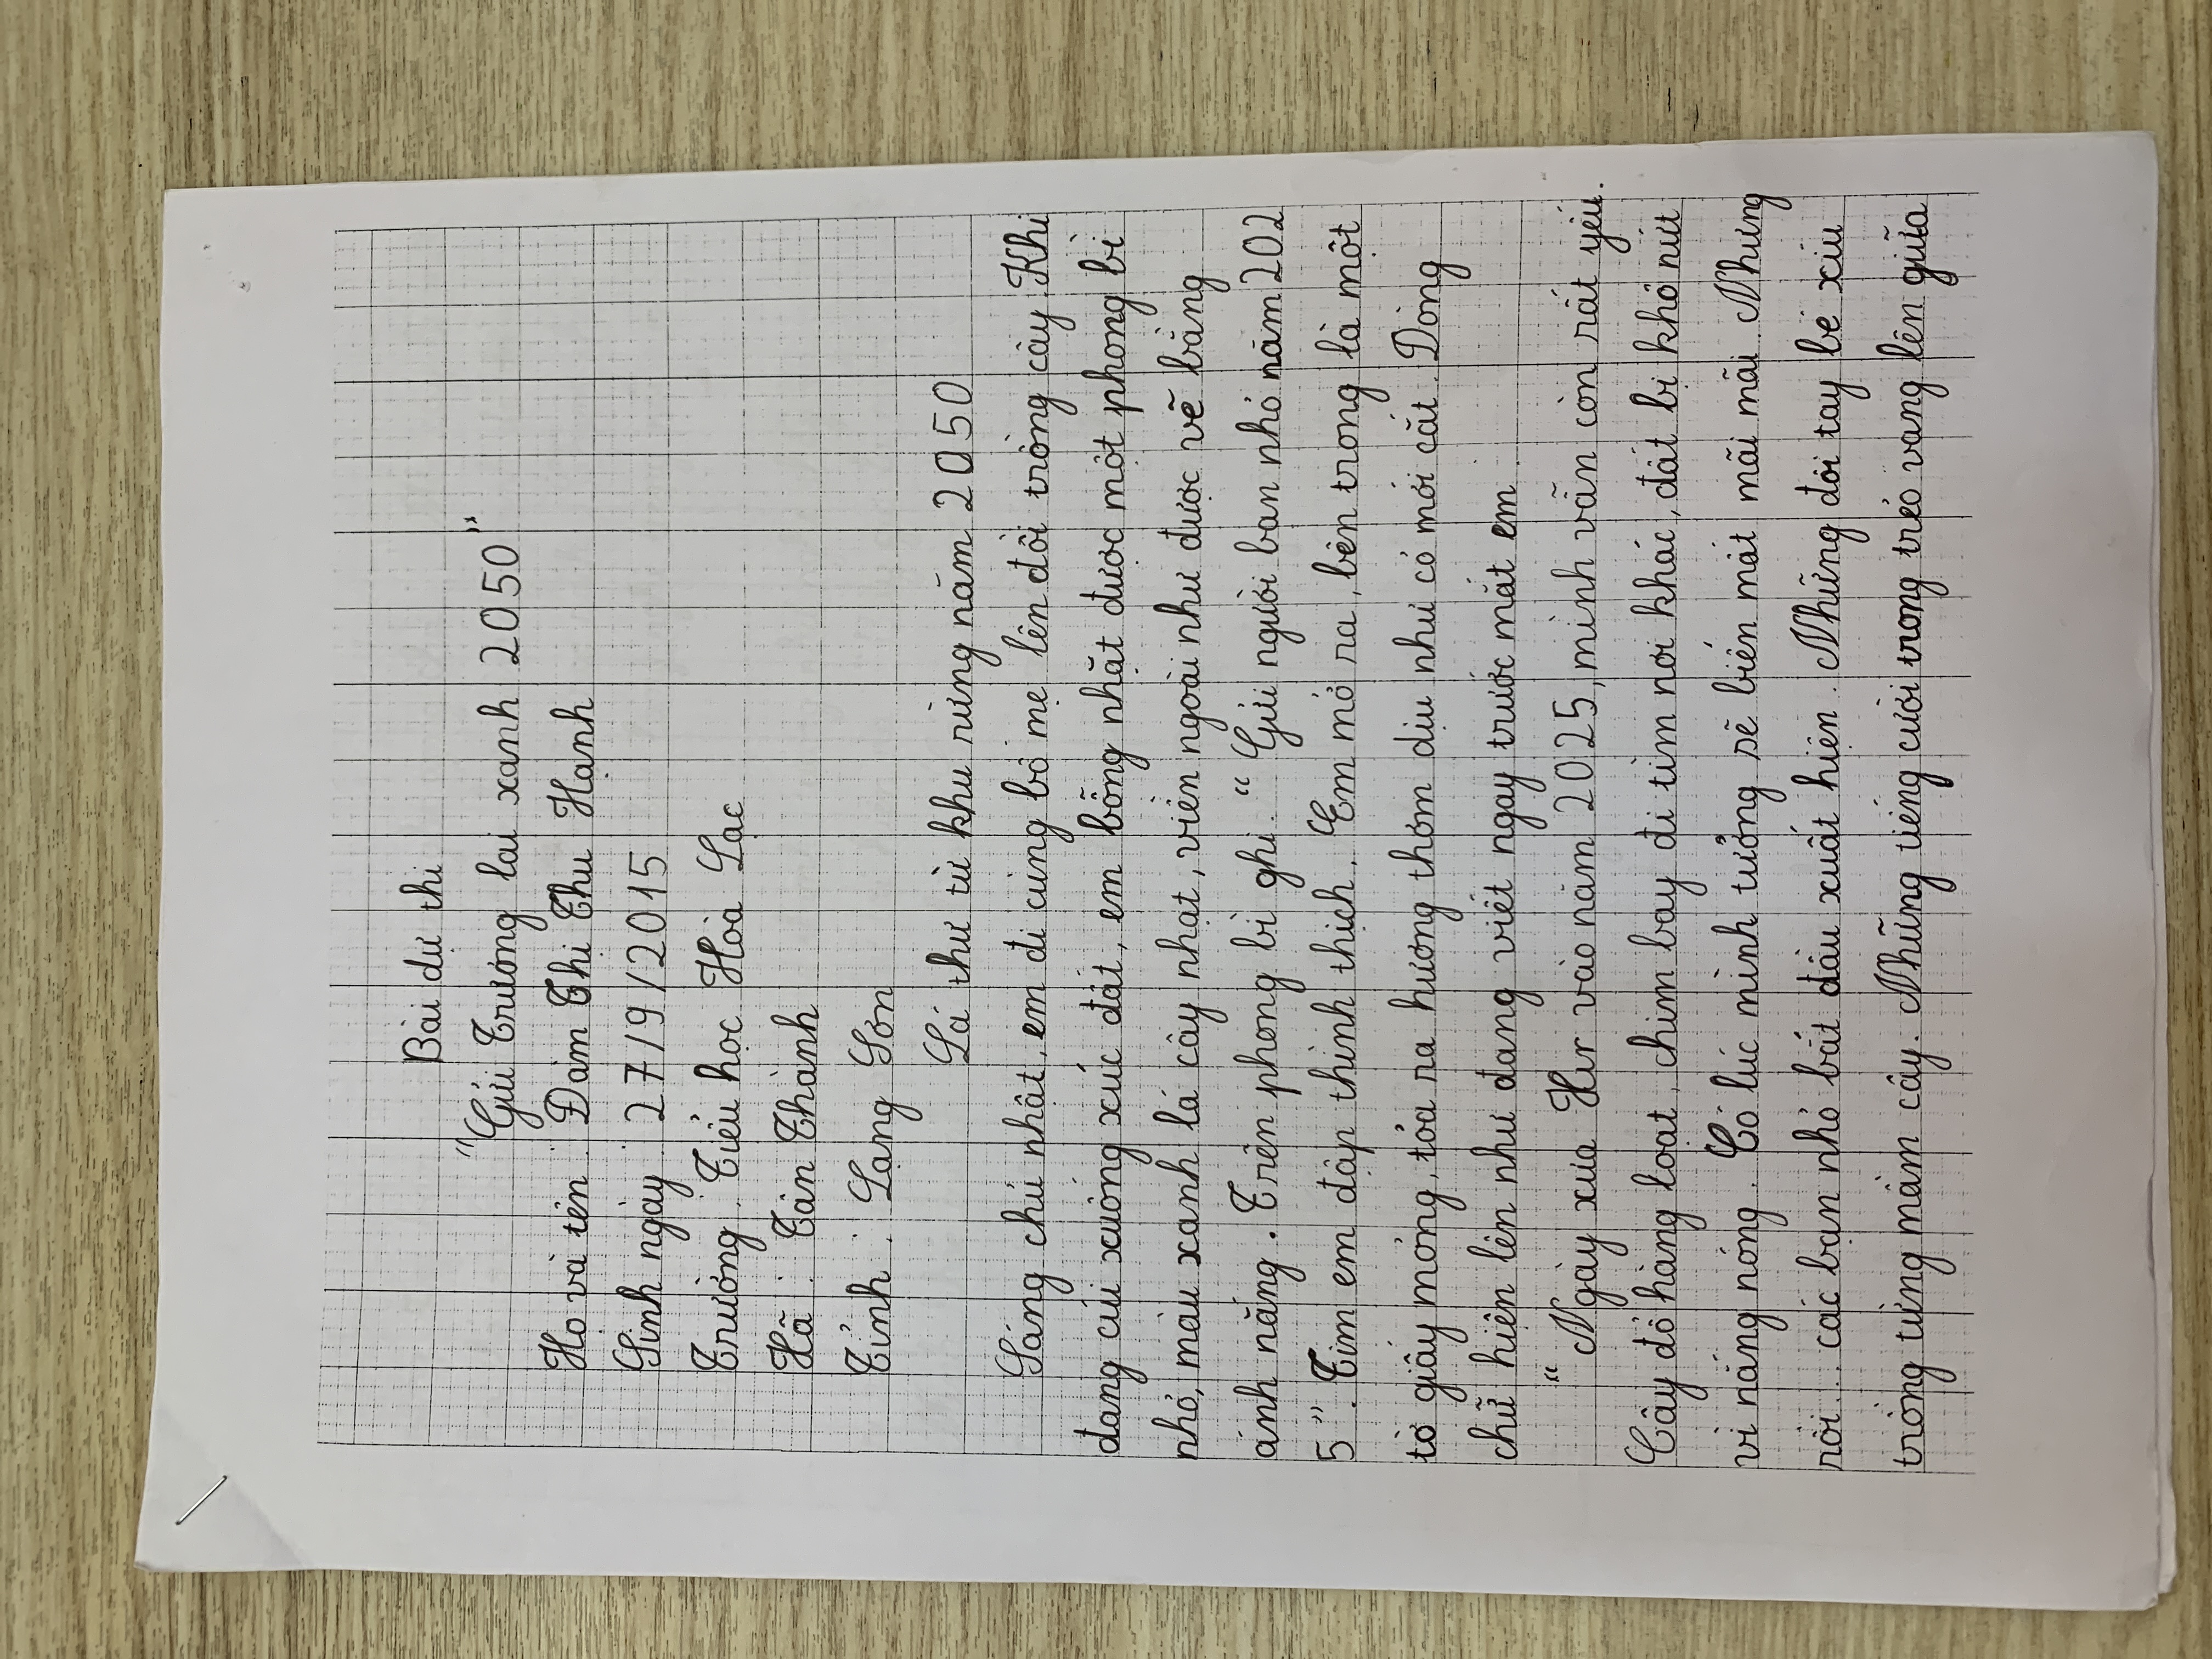 Bài dự thi
"Gửi Trương lai xanh 2050"
Họ và tên : Đàm Thị Thu Hạnh
Sinh ngày : 27/9/2015
Trường : Tiểu học Hoà Lạc
Hã : Tân Thành
Tỉnh : Lạng Sơn
Lá thư từ khu rừng năm 2050
Sáng chủ nhật, em đi cùng bố mẹ lên đồi trồng cây. Khi
đang cúi xuống xúc đất, em bỗng nhặt được một phong bì
nhỏ, màu xanh lá cây nhạt, viền ngoài như được vẽ bằng
ánh nắng. Trên phong bì ghi: "Gửi người bạn nhỏ năm 202
5". Tim em đập thình thịch. Em mở ra, bên trong là một
tờ giấy mỏng, tỏa ra hương thơm dịu như cỏ mới cắt. Dòng
chữ hiện lên như đang viết ngay trước mắt em.
" Ngày xưa Hư vào năm 2025, mình vẫn còn rất yếu.
Cây đổ hàng loạt, chim bay đi tìm nơi khác, đất bị khô nứt
vì nắng nóng. Có lúc mình tưởng sẽ biến mất mãi mãi. Nhưng
rồi... các bạn nhỏ bắt đầu xuất hiện. Những đôi tay bé xíu
trồng từng mầm cây. Những tiếng cười trong trẻo vang lên giữa